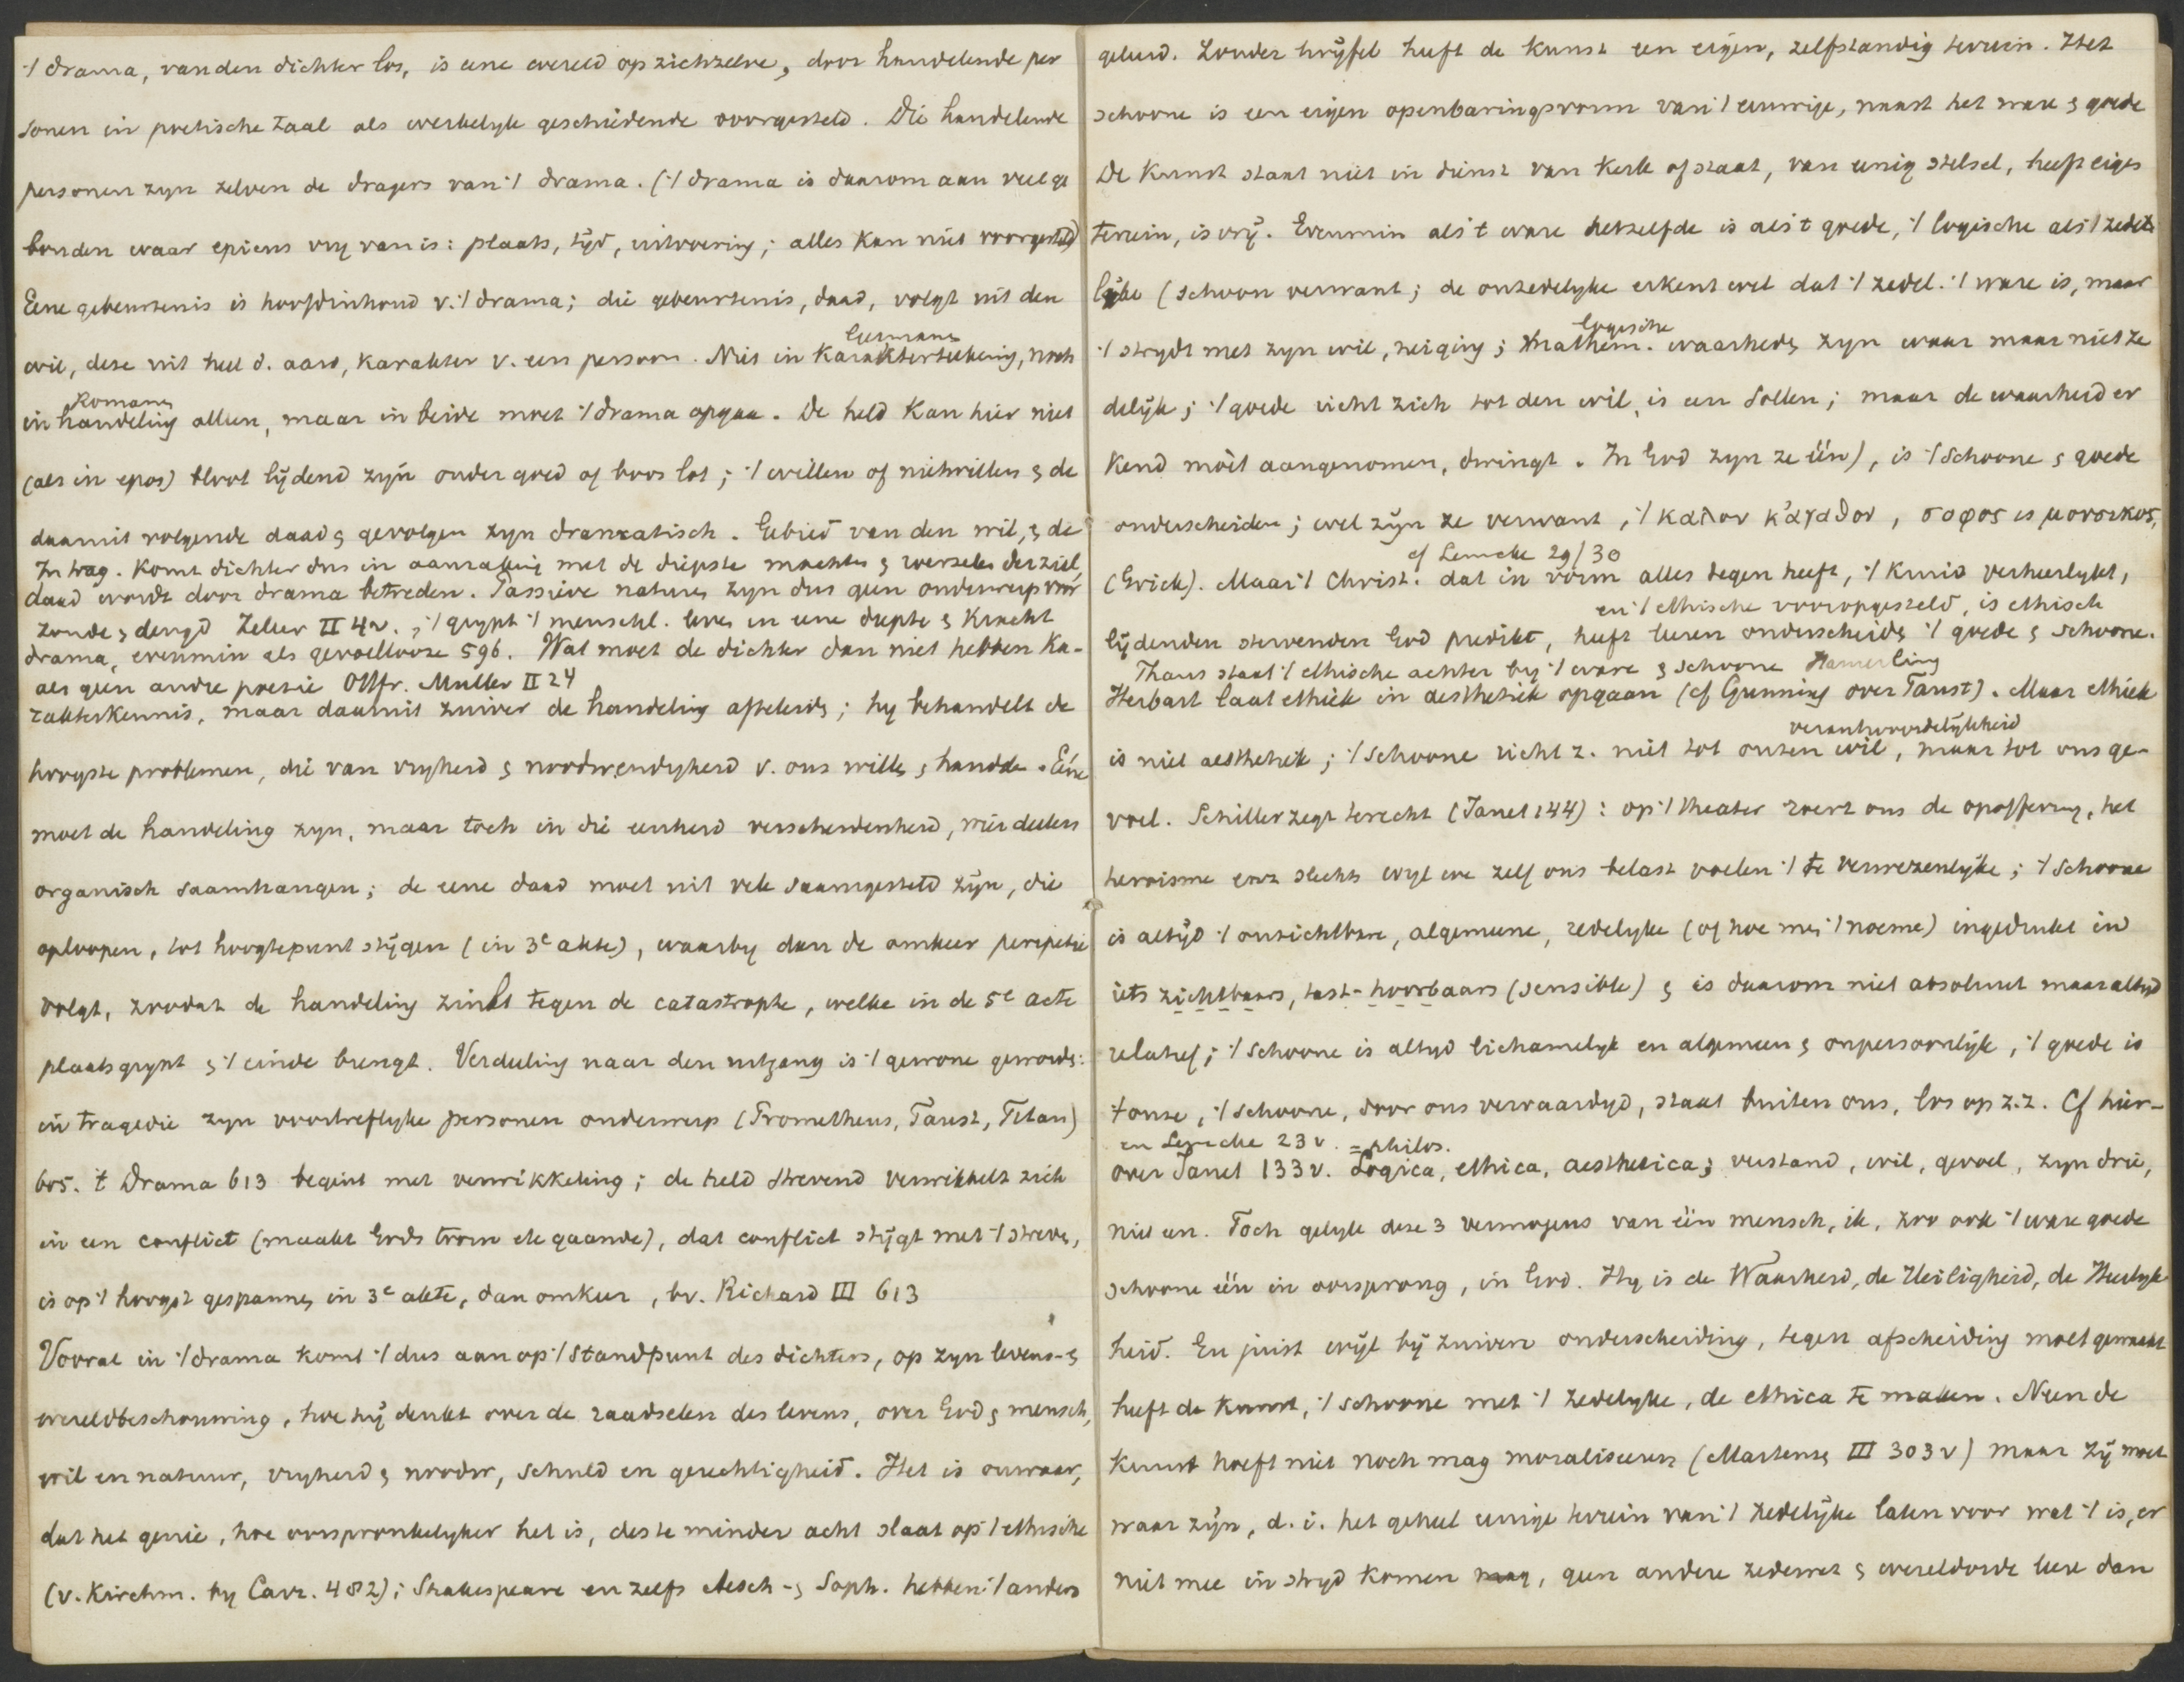 't drama, van den dichter los, is eene wereld op zichzelve, door handelende per
sonen in poëtische taal als werkelyk geschiedende voorgesteld. Die handelende
personen zyn zelven de dragers van 't drama. ('t drama is daarom aan veel ge
bonden waar epicus vry van is: plaats, tijd, uitvoering; alles kan niet voorgesteld)
Eene gebeurtenis is hoofdinhoud v. 't drama; die gebeurtenis, daad, volgt uit den
Germanen
wil, deze uit heel d. aard, karakter v. een persoon. Niet in karaktertekening, noch
Romanen
in handeling alleen, maar in beide moet 't drama opgaan. De held kan hier niet
(als in epos) bloot lijdend zijn onder goed of boos lot; 't willen of nietwillen & de
daaruit volgende daad & gevolgen zyn dramatisch. Gebied van den wil, & de
In trag. komt dichter dus in aanraking met de diepste machten & wortelen der ziel
daad wordt door drama betreden. Passieve naturen zyn dus geen onderwerp voor
zonde & deugd Zeller II 42., 't grypt 't menschl. leven in eene diepte & kracht
drama, evenmin als gevoelloze 596. Wat moet de dichter dan niet hebben ka-
als geen andre poezie Ottfr. Muller II 24
rakterkennis, maar daaruit zuiver de handeling afleiden; hy behandelt de
hoogste problemen, die van vryheid & noodwendigheid v. ons willen & handelen. Eéne
moet de handeling zyn, maar toch in die eenheid verscheidenheid, wier deelen
organisch saamhangen; de eene daad moet uit vele saamgesteld zijn, die
oploopen, tot hoogtepunt stijgen (in 3e akte), waarby dan de omkeer peripetie
volgt, zoodat de handeling zinkt tegen de catastrophe, welke in de 5e acte
plaatsgrypt & 't einde brengt. Verdeeling naar den uitgang is 't gewone geworden:
in tragedie zyn voortreflyke personen onderwerp (Prometheus, Faust, Titan)
605. 't Drama 613 begint met verwikkeling; de held strevend verwikkelt zich
in een conflict (maakt Gods toorn etc gaande), dat conflict stijgt met 't streven,
is op 't hoogst gespannen in 3e akte, dan omkeer, bv. Richard III 613
Vooral in 't drama komt 't dus aan op 't standpunt des dichters, op zyn levens- &
wereldbeschouwing, hoe hij denkt over de raadselen des levens, over God & mensch,
wil en natuur, vryheid & noodw, schuld en gerechtigheid. Het is onwaar,
dat het genie, hoe oorspronkelyker het is, des te minder acht slaat op 't ethische
(v. Kirchm. by Carr. 482); Shakespeare en zelfs Aesch- & Soph. hebben 't anders
geleerd. Zonder twijfel heeft de kunst een eigen, zelfstandig terrein. Het
schoone is een eigen openbaringsvorm van 't eeuwige, naast het ware & goede
De kunst staat niet in dienst van kerk of staat, van eenig stelsel, heeft eigen
terrein, is vrij. Evenmin als 't ware hetzelfde is als 't goede, 't logische als 't zede-
lijke (schoon verwant; de onzedelyke erkent wel dat 't zedel. 't ware is, maar
logische
't strydt met zyn wil, neiging; mathem. waarheden zyn waar maar niet ze
delijk; 't goede richt zich tot den wil, is een Sollen; maar de waarheid er
kend móet aangenomen, dwingt. In God zyn ze één), is 't schoone & goede
onderscheiden; wel zijn ze verwant, 't καλον κἀγαθον, σοφος is μουσικος,
cf Lemcke 29/30
(Griek). Maar 't Christ. dat in vorm alles tegen heeft, 't kruis verheerlykt,
en 't ethische vooropgesteld, is ethisch
lijdenden stervenden God predikt, heeft leeren onderscheiden 't goede & schoone.
Thans staat 't ethische achter by 't ware & schoone Hamerling
Herbart laat ethiek in aesthetiek opgaan (cf Gunning over Faust). Maar ethiek
verantwoordelijkheid
is niet aesthetiek; 't schoone richt z. niet tot onzen wil, maar tot ons ge-
voel. Schiller zegt terecht (Janet 144): op 't theater roert ons de opoffering, het
heroisme enz slechts wyl we zelf ons belast voelen 't te verwezenlyken; 't schoone
is altijd 't onzichtbare, algemeene, redelyke (of hoe men 't noeme) ingedrukt in
iets zichtbaars, tast- hoorbaars (sensible) & is daarom niet absoluut maar altyd
relatief; 't schoone is altyd lichamelyk en algemeen & onpersoonlijk, 't goede is
't onze, 't schoone, door ons vervaardigd, staat buiten ons, los op z.z. Cf hier-
en Lemcke 23 v. = philos.
over Janet 133 v. Logica, ethica, aesthetica; verstand, wil, gevoel, zyn drie,
niet een. Toch gelyk deze 3 vermogens van één mensch, ik, zoo ook 't ware goede
schoone één in oorsprong, in God. Hy is de Waarheid, de Heiligheid, de Heerlyk
heid. En juist wijl bij zuivere onderscheiding, tegen afscheiding moet gewaakt
heeft de kunst, 't schoone met 't zedelyke, de ethica te maken. Neen de
kunst hoeft niet noch mag moraliseeren (Martensen III 303 v) maar zij moet
waar zijn, d.i. het geheel eenige terrein van 't zedelijke laten voor wat 't is, er
niet mee in stryd komen, geen andere zedewet & wereldorde leere dan